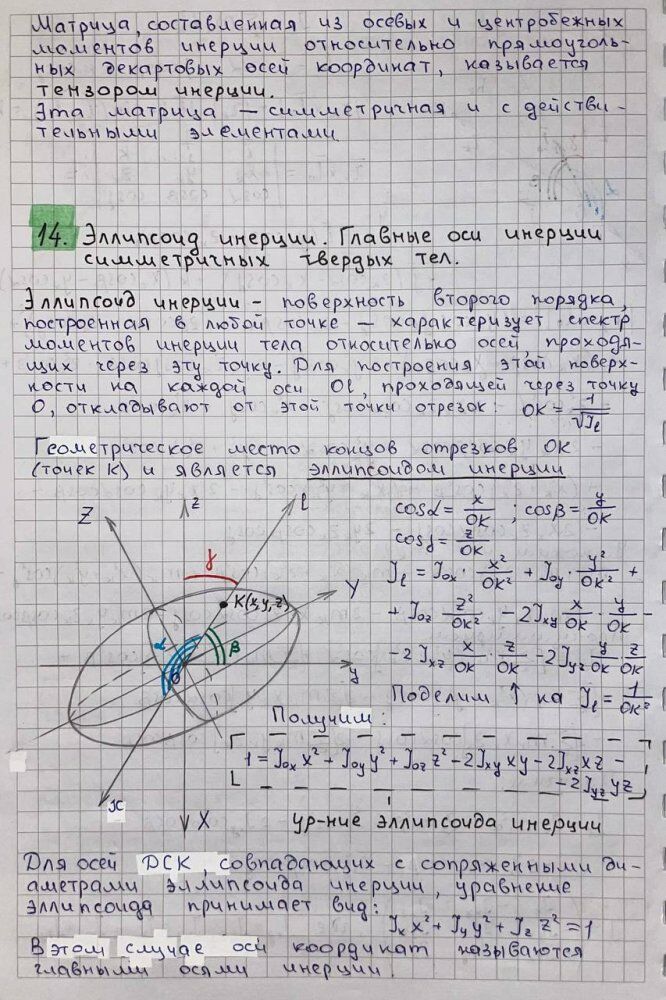 Матрица, составленная из осевых и центробежных
моментов инерции относительно прямоуголь-
ных декартовых осей координат, называется
тензором инерции.
Эта матрица — симметричная и с действи-
тельными элементами
14. Эллипсоид инерции. Главные оси инерции
симметричных твердых тел.
Эллипсоид инерции – поверхность второго порядка,
построенная в любой точке — характеризует спектр
моментов инерции тела относительно осей, проходя-
щих через эту точку. Для построения этой поверх-
ности на каждой оси Ol, проходящей через точку
O, откладывают от этой точки отрезок: OK = 1/√J_l
Геометрическое место концов отрезков OK
(точек K) и является эллипсоидом инерции
z
Z
l
γ
K(x,y,z)
Y
α
β
O
y
x
X
cosα = x/OK ; cosβ = y/OK
cosγ = z/OK
J_l = J_ox · x²/OK² + J_oy · y²/OK² +
+ J_oz z²/OK² – 2J_xy x/OK · y/OK –
– 2J_xz x/OK · z/OK – 2J_yz y/OK · z/OK
Поделим ↑ на J_l = 1/OK²
Получим:
1 = J_ox x² + J_oy y² + J_oz z² – 2J_xy xy – 2J_xz xz –
– 2J_yz yz
ур-ние эллипсоида инерции
Для осей ДСК, совпадающих с сопряженными ди-
аметрами эллипсоида инерции, уравнение
эллипсоида принимает вид:
J_x x² + J_y y² + J_z z² = 1
В этом случае оси координат называются
главными осями инерции.